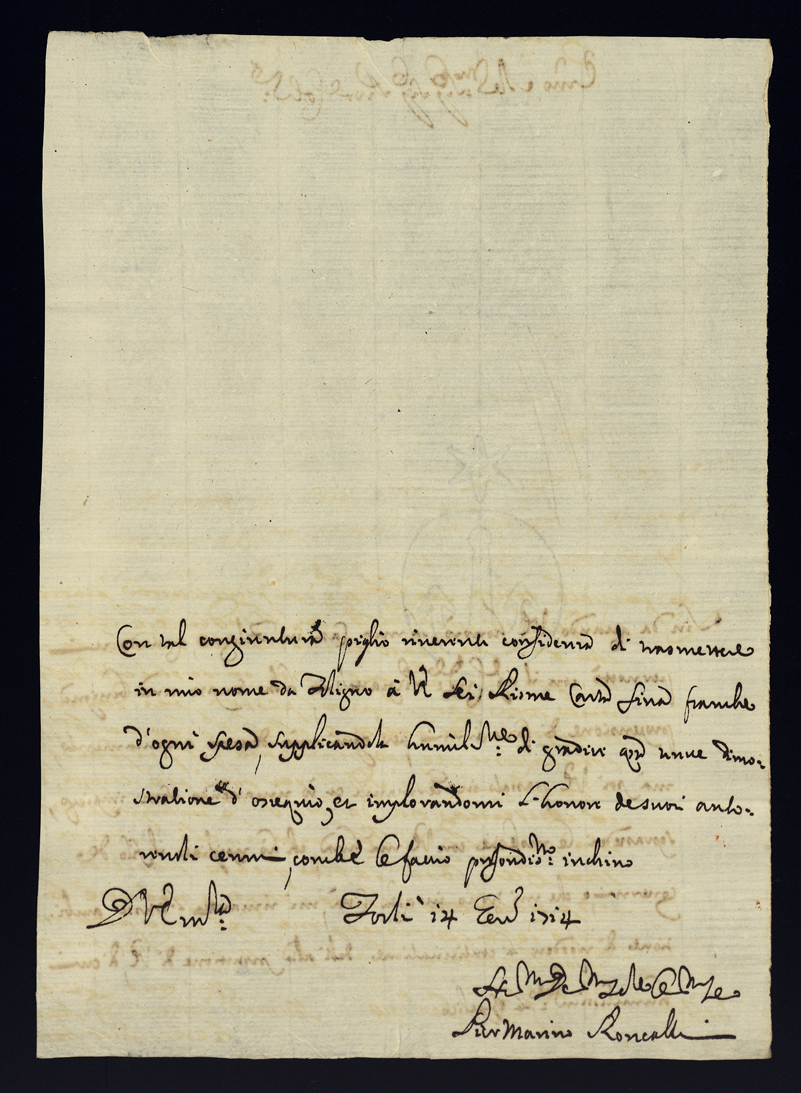 Con tal congiuntura piglio riverente confidenza di trasmettere
in mio nome da Foligno à VE Sei Risme Carta fina franche
d'ogni spesa, supplicandola humilme di gradire qta tenue dimo-
stratione d'ossequio, et implorandomi l'honore de suoi auto-
revoli cenni, con che le faccio profondismo inchino
D VE mta Forlì 14 Gen 1714
Pier Marino Roncalli